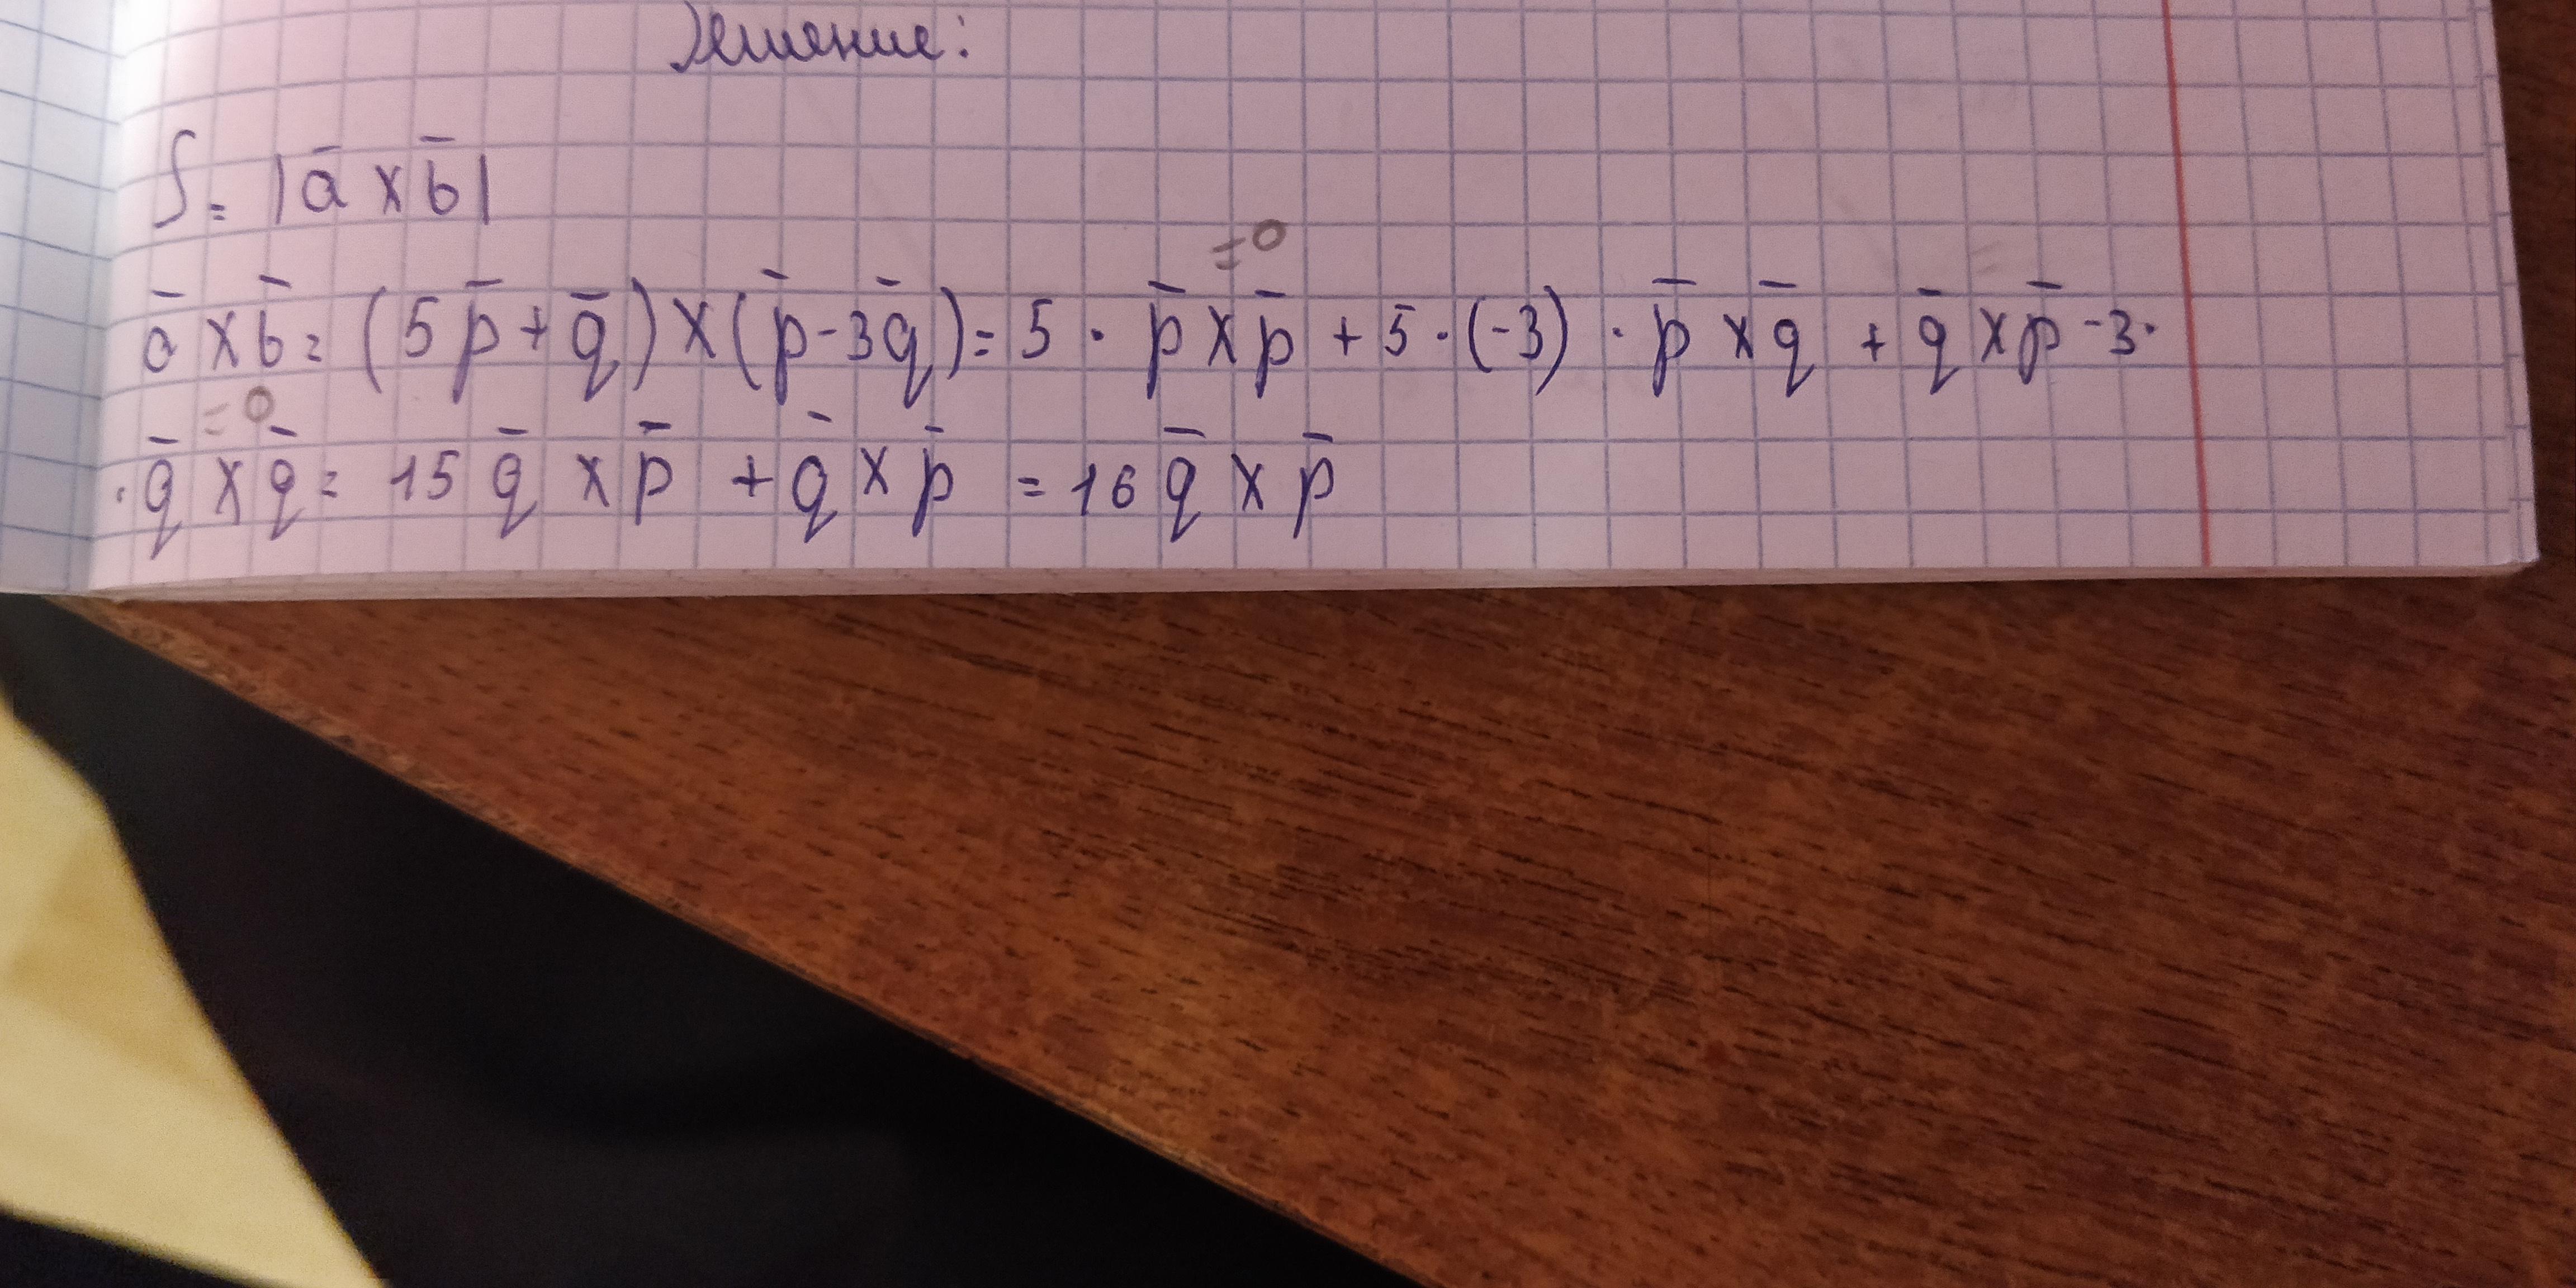 Решение:
S = |a̅ × b̅|
=0
a̅ × b̅ = (5p̅ + q̅) × (p̅ - 3q̅) = 5 · p̅ × p̅ + 5 · (-3) · p̅ × q̅ + q̅ × p̅ - 3 ·
=0
· q̅ × q̅ = 15 q̅ × p̅ + q̅ × p̅ = 16 q̅ × p̅